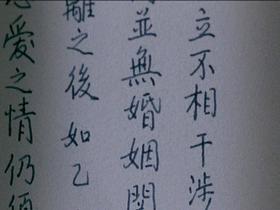 立不相干涉
並無婚姻
離之後如乙
愛之情仍